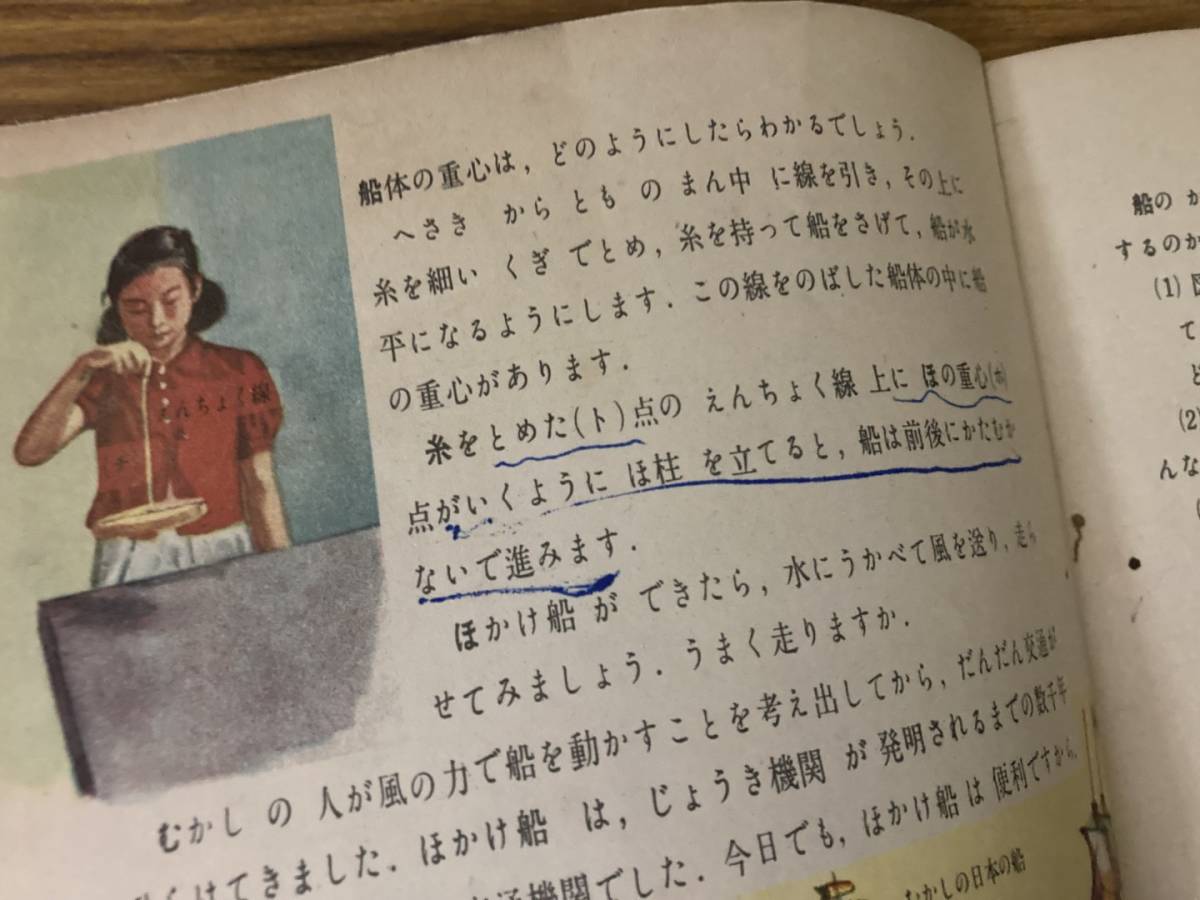 船体の重心は，どのようにしたらわかるでしょう．
へさき から とも の まん中 に線を引き，その上に
糸を細い くぎ でとめ，糸を持って船をさげて，船が水
平になるようにします．この線をのばした船体の中に船
の重心があります．
糸をとめた(ト)点の えんちょく線 上に ほの重心(ホ)
点がいくように ほ柱 を立てると，船は前後にかたむか
ないで進みます．
ほかけ船 が できたら，水にうかべて風を送り，走ら
せてみましょう．うまく走りますか．
むかし の 人が風の力で船を動かすことを考え出してから，だんだん交通が
けてきました．ほかけ船 は，じょうき機関 が 発明されるまでの数千年
機関でした．今日でも，ほかけ船 は 便利ですから，
むかしの日本の船
えんちょく線
チ
船の か
するのか
(1) 図
て
ど
(2)
んな
(